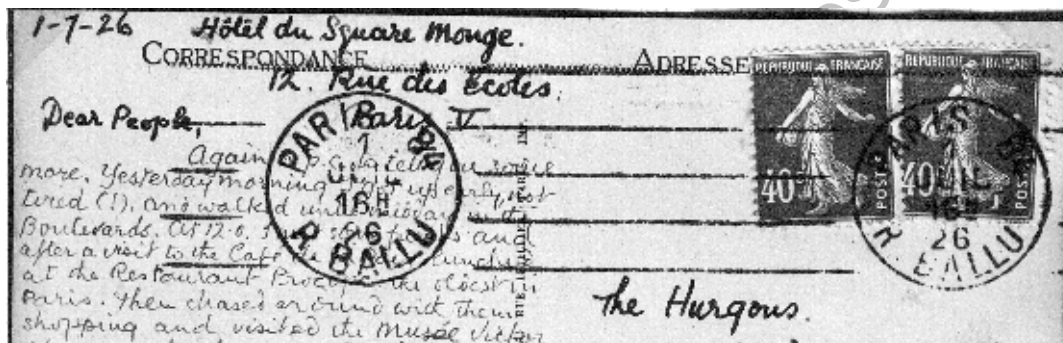 1-7-26 Hôtel du Square Monge.
CORRESPONDANCE ADRESSE
12. Rue des Ecoles.
Paris V
Dear People,
Again telling you some
more. Yesterday morning I got up early, not
tired (!), and walked until midday in the
Boulevards. At 12.0. I and
after a visit to the Café lunched
at the Restaurant the oldest in
Paris. Then chased around with them
shopping and visited the Musée Victor
The Hurgons.
REPUBLIQUE FRANÇAISE
40c
POSTES
REPUBLIQUE FRANÇAISE
40c
POSTES
PARIS
1
JUIL
16H
26
R. BALLU
PARIS
JUIL
16H
26
R. BALLU